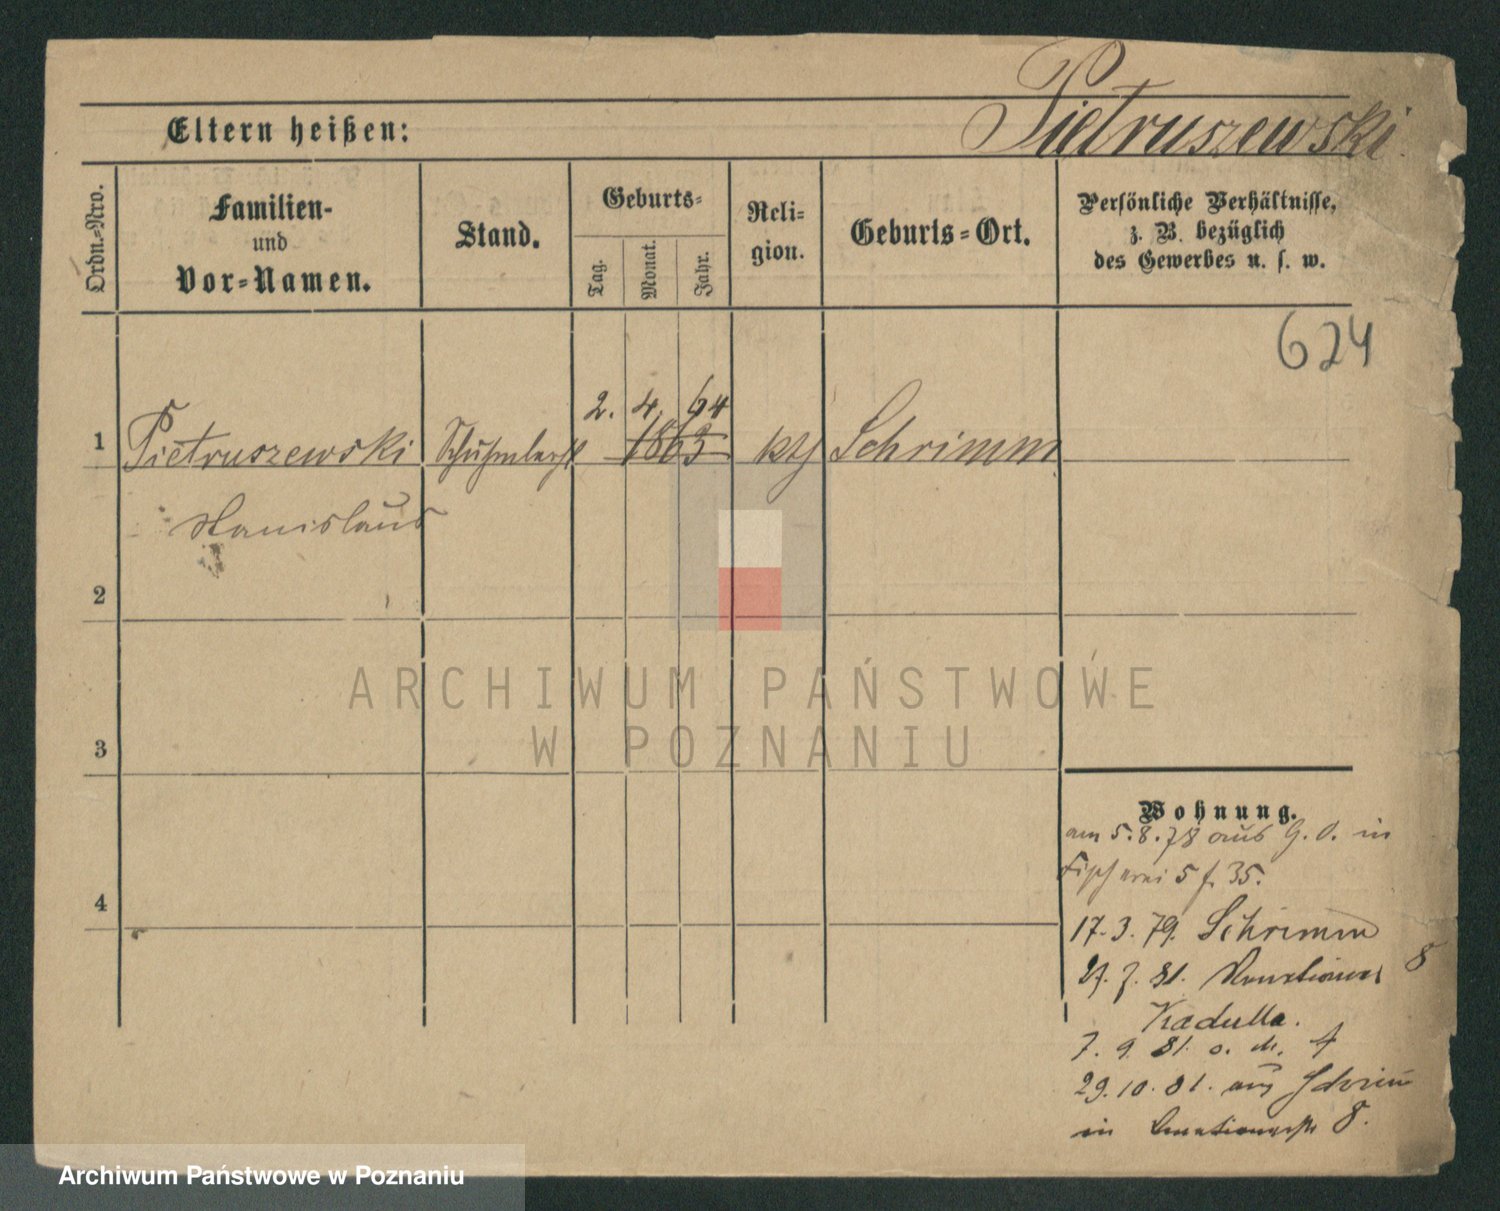 Pietruszewski.
Eltern heißen:
Ordn.=Nro.
Familien-
und
Vor=Namen.
Stand.
Geburts=
Tag.
Monat.
Jahr.
Reli=
gion.
Geburts=Ort.
Persönliche Verhältnisse,
z. B. bezüglich
des Gewerbes u. s. w.
624
2. 4. 64
1 Pietruszewski 1863 Schrimm
Stanislaus
2
ARCHIWUM PAŃSTWOWE
W POZNANIU
3
Wohnung.
am 5.8.78 aus G. O. in
Fischerei 5 f. 35.
4
17. 3. 79. Schrimm
27. 7. 81. 8
Kadulla.
7. 9. 81.
29. 10. 81. aus Schrim
in 8.
Archiwum Państwowe w Poznaniu